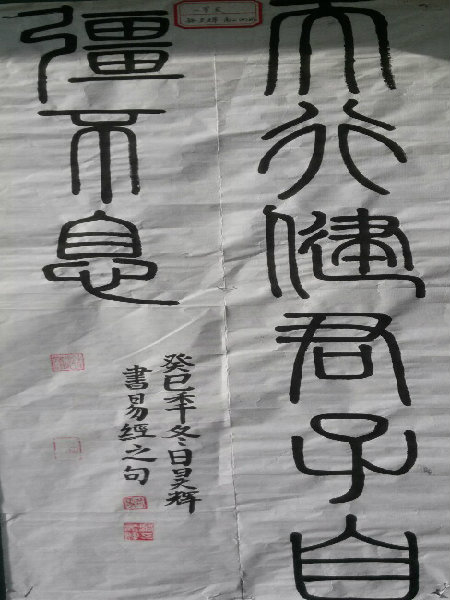 天行健君子自
彊不息
癸巳季冬日昊辉
書易經之句
一等奖